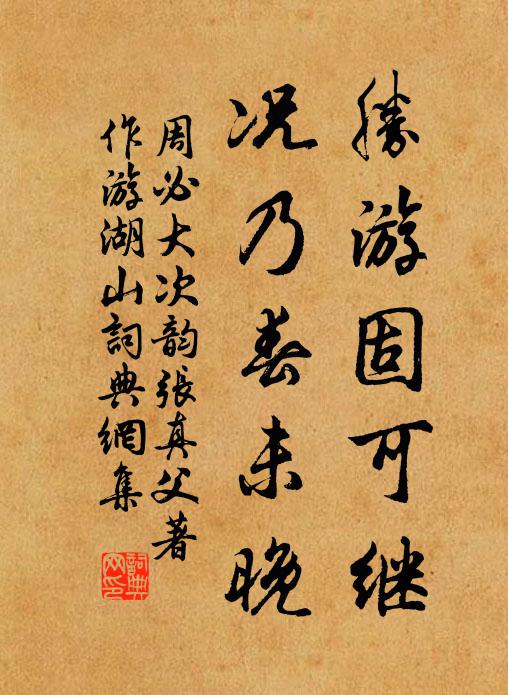 勝游固可继
况乃春未晚
周必大次韵張真父著
作游湖山詞典網集